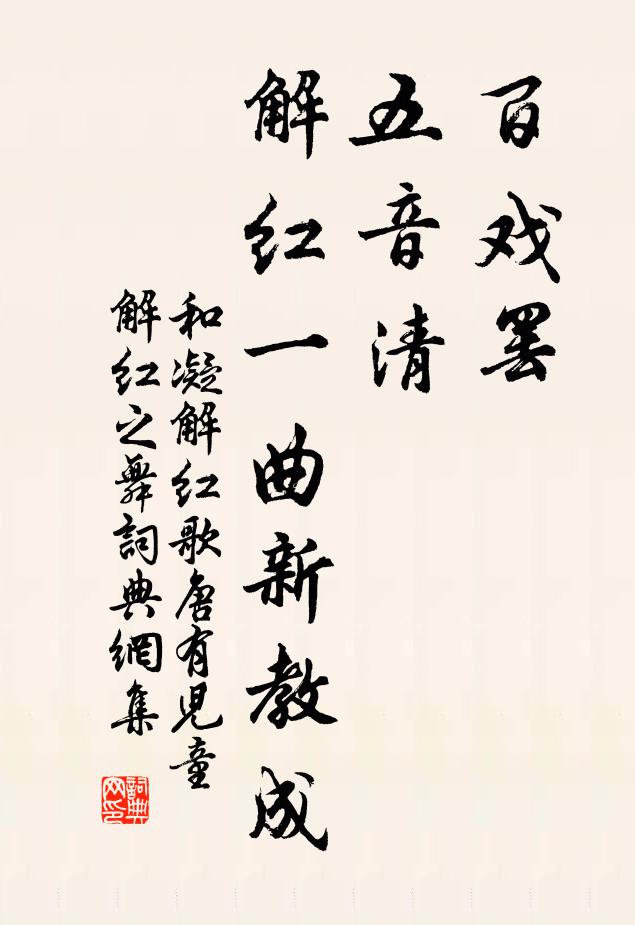 百戏罢
五音清
解红一曲新教成
和凝解红歌唐有児童
解红之舞詞典網集
詞典网印